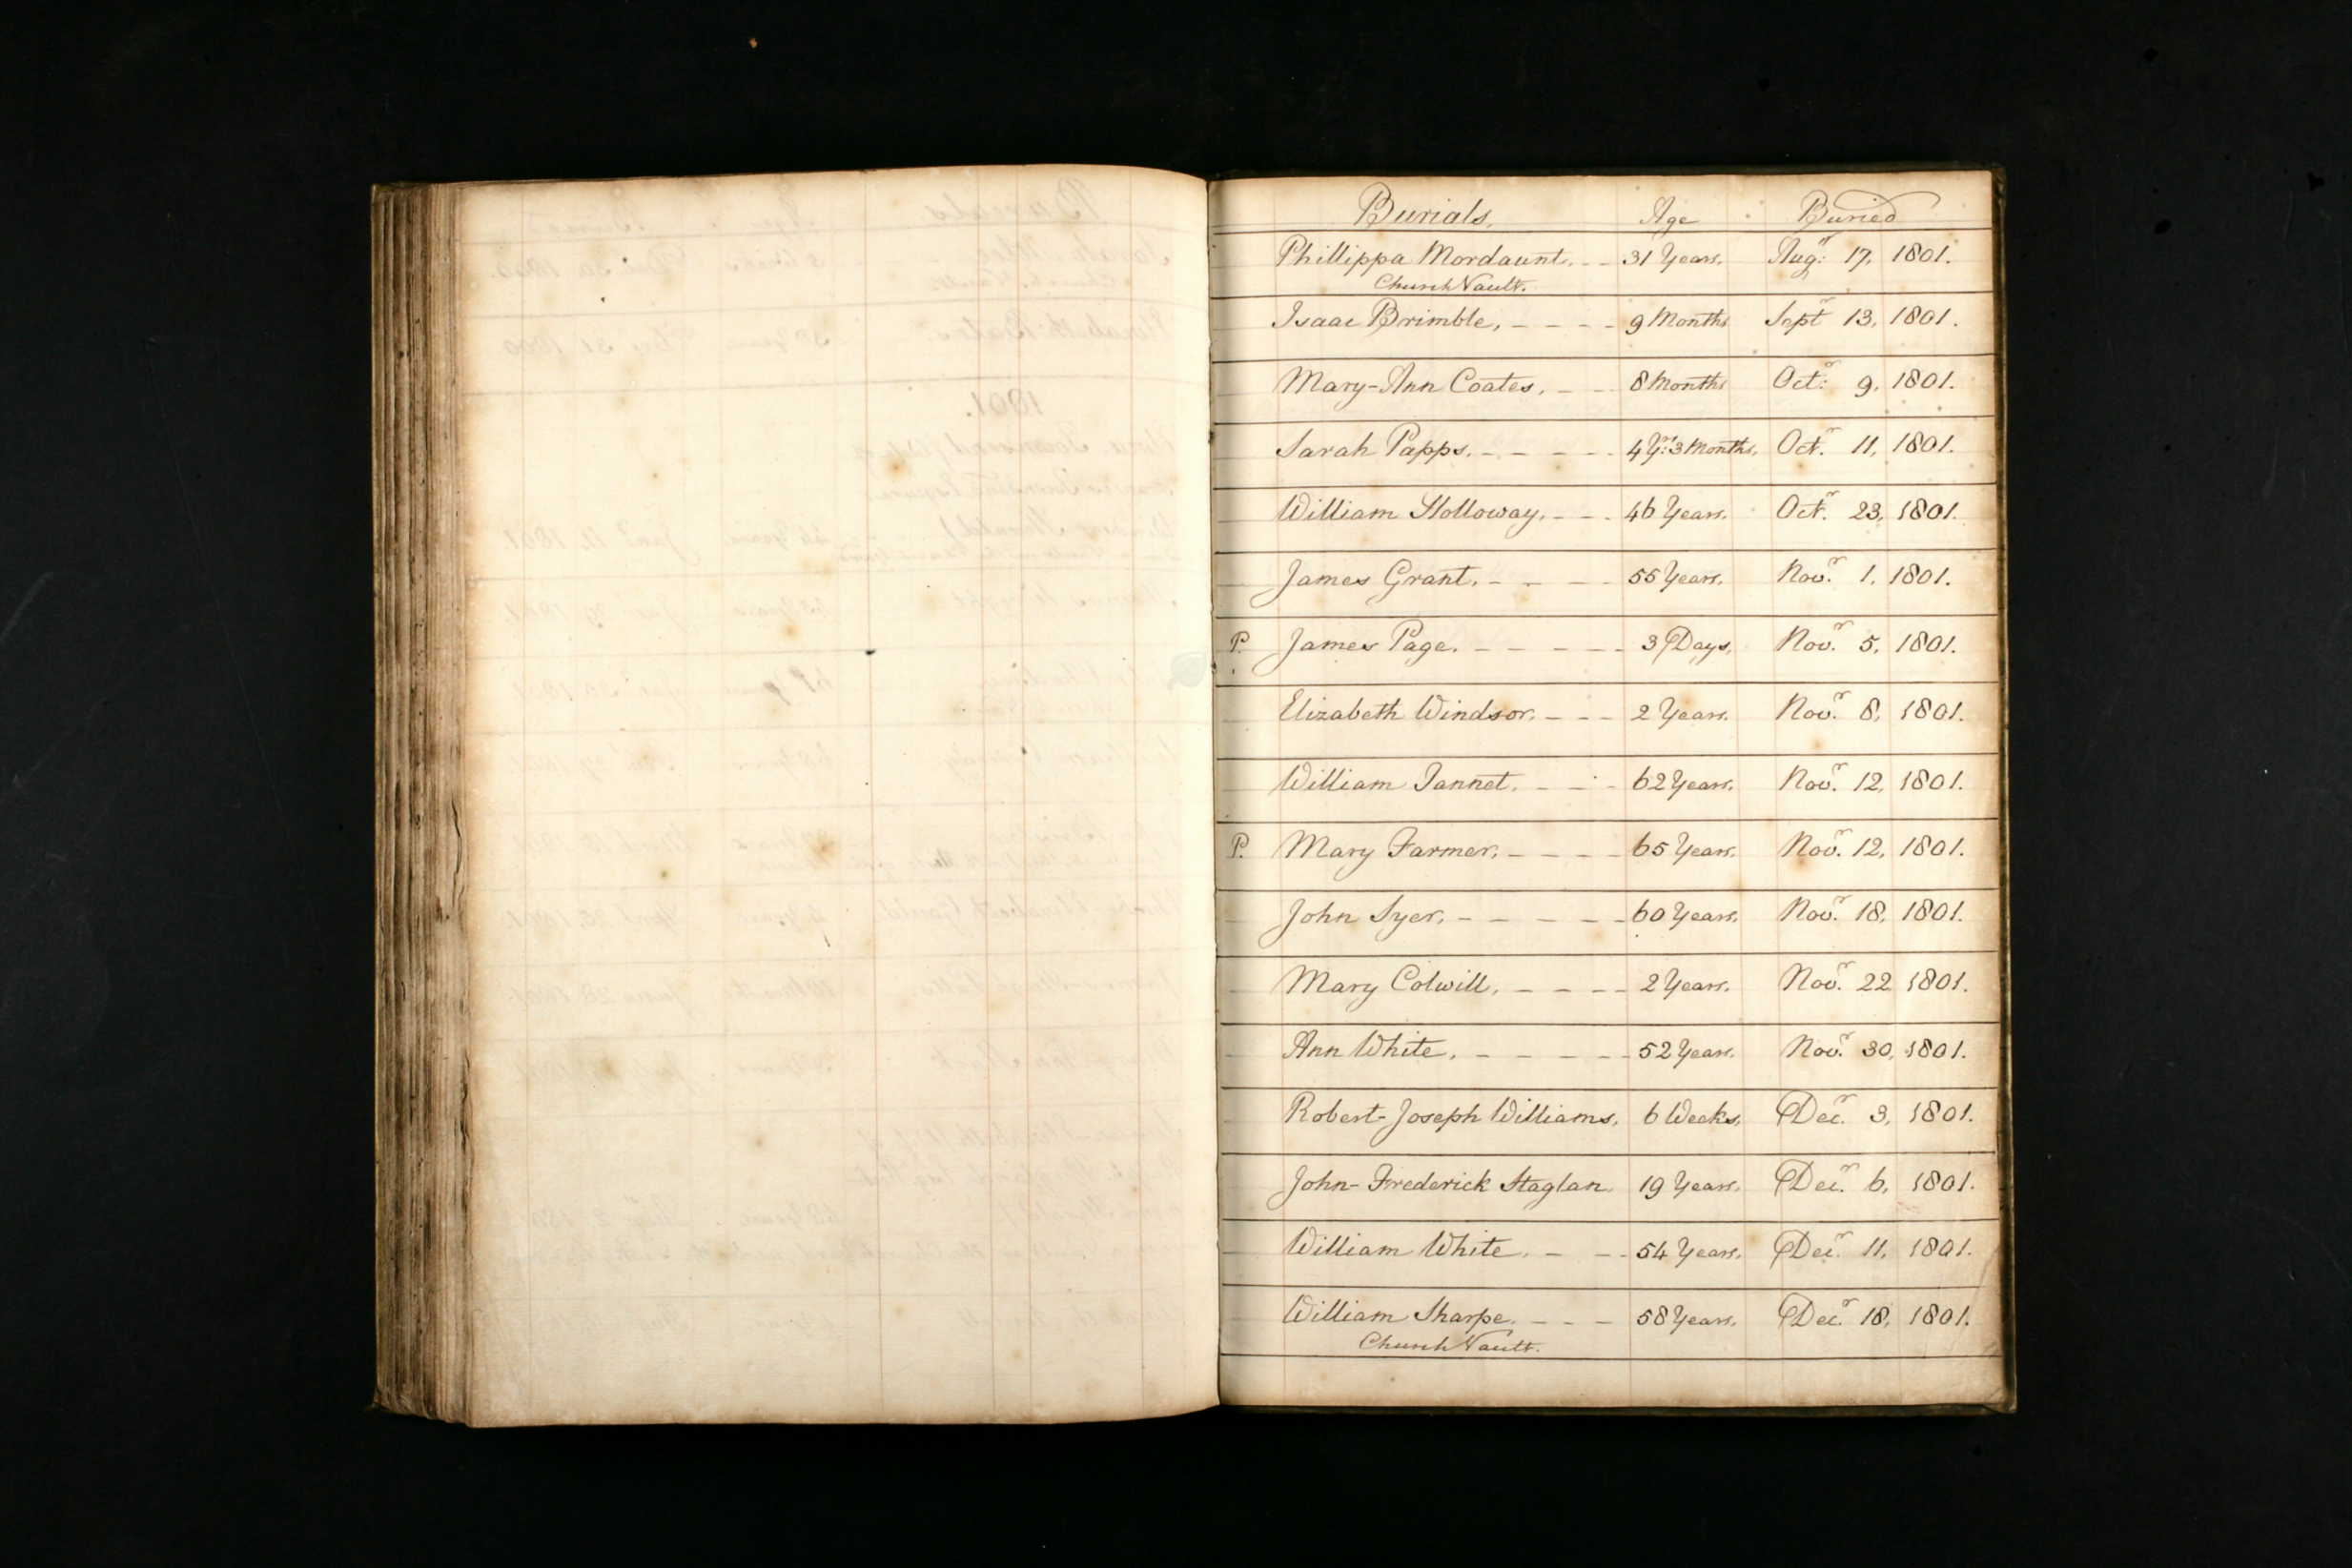 Burials, Age Buried
Phillippa Mordaunt. - - 31 Years. Augt: 17, 1801.
Church Vault.
Isaac Brimble, - - - - 9 Months Sept 13, 1801.
Mary-Ann Coates, - - 8 Months Octr: 9, 1801.
Sarah Papps. - - - - - 4 Yrs: 3 Months, Octr. 11, 1801.
William Holloway. - - - 46 Years. Octr. 23, 1801.
James Grant. - - - - 55 Years. Novr. 1, 1801.
P. James Page. - - - - - 3 Days, Novr. 5, 1801.
Elizabeth Windsor. - - - 2 Years. Novr. 8, 1801.
William Jannet. - - - 62 Years. Novr. 12, 1801.
P. Mary Farmer, - - - - 65 Years. Novr. 12, 1801.
John Syer, - - - - - 60 Years. Novr. 18, 1801.
Mary Colwill, - - - - 2 Years. Novr. 22 1801.
Ann White, - - - - - 52 Years. Novr. 30, 1801.
Robert-Joseph Williams, 6 Weeks, Decr. 3, 1801.
John-Frederick Staglan. 19 Years. Decr. 6, 1801.
William White. - - - 54 Years. Decr. 11, 1801.
William Sharpe. - - - 58 Years. Decr. 18, 1801.
Church Vault.